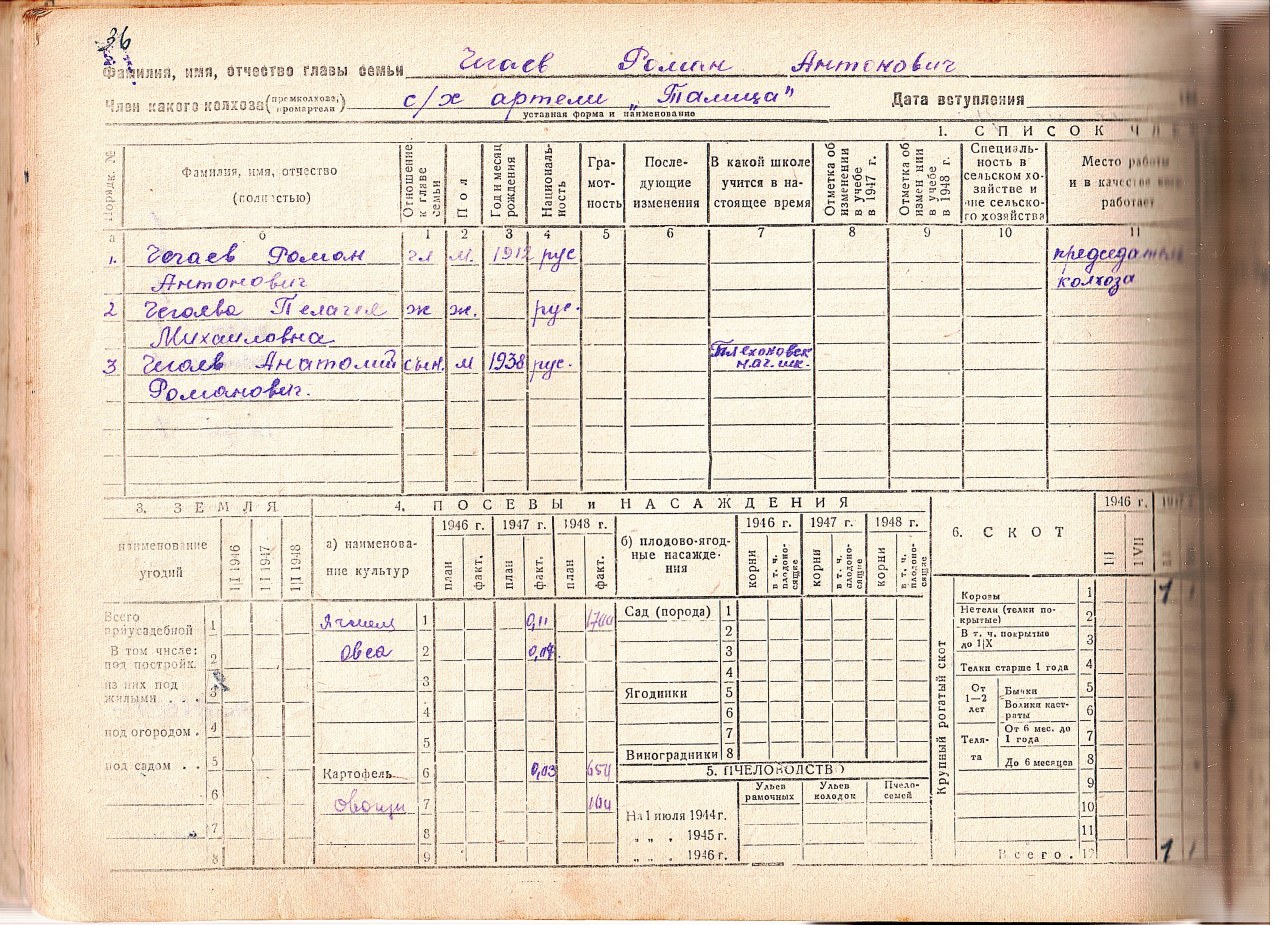 36
Фамилия, имя, отчество главы семьи Чегаев Роман Антонович
Член какого колхоза (промколхоза, промартели) с/х артели „Талица"
уставная форма и наименование
Дата вступления
1. СПИСОК
Порядк. №
Фамилия, имя, отчество (полностью)
Отношение к главе семьи
Пол
Год и месяц рождения
Националь-ность
Гра-мот-ность
После-дующие изменения
В какой школе учится в на-стоящее время
Отметка об изменении в учебе в 1947 г.
Отметка об измен нии в учебе в 1948 г.
Специаль-ность в сельском хо-зяйстве и вне сельско-го хозяйства
Место работы и в качестве кого работает
а б 1 2 3 4 5 6 7 8 9 10 11
1. Чегаев Роман гл м. 1912 рус председатель
Антонович колхоза
2 Чегаева Пелагея ж ж. рус.
Михаиловна
3 Чегаев Анатолий сын. м 1938 рус. Плехоновск нач. шк.
Романович.
3. ЗЕМЛЯ
наименование угодий
1|II 1946
1|II 1947
1|II 1948
Всего приусадебной 1
В том числе: под постройк. 2
из них под жилыми . . . 3
под огородом . 4
под садом . . 5
6
7
8
4. ПОСЕВЫ и НАСАЖДЕНИЯ
а) наименова-ние культур
1946 г. 1947 г. 1948 г.
план факт. план факт. план факт.
Ячмень 1 0,11
Овса 2
3
4
5
Картофель 6 0,03
Овощи 7
8
9
б) плодово-ягод-ные насажде-ния
1946 г. 1947 г. 1948 г.
корни в т. ч. плодоно-сящие корни в т. ч. плодоно-сящие корни в т. ч. плодоно-сящие
Сад (порода) 1
2
3
4
Ягодники 5
6
7
Виноградники 8
5. ПЧЕЛОВОДСТВО
Ульев рамочных Ульев колодок Пчело-семей
На 1 июля 1944 г.
„ „ „ 1945 г.
„ „ „ 1946 г.
6. СКОТ
1946 г.
Крупный рогатый скот
Коровы 1 1
Нетели (телки по-крытые) 2
В т. ч. покрытые до 1|X 3
Телки старше 1 года 4
От 1—2 лет Бычки 5
Волики каст-раты 6
Теля-та От 6 мес. до 1 года 7
До 6 месяцев 8
9
10
11
Всего . 12 1